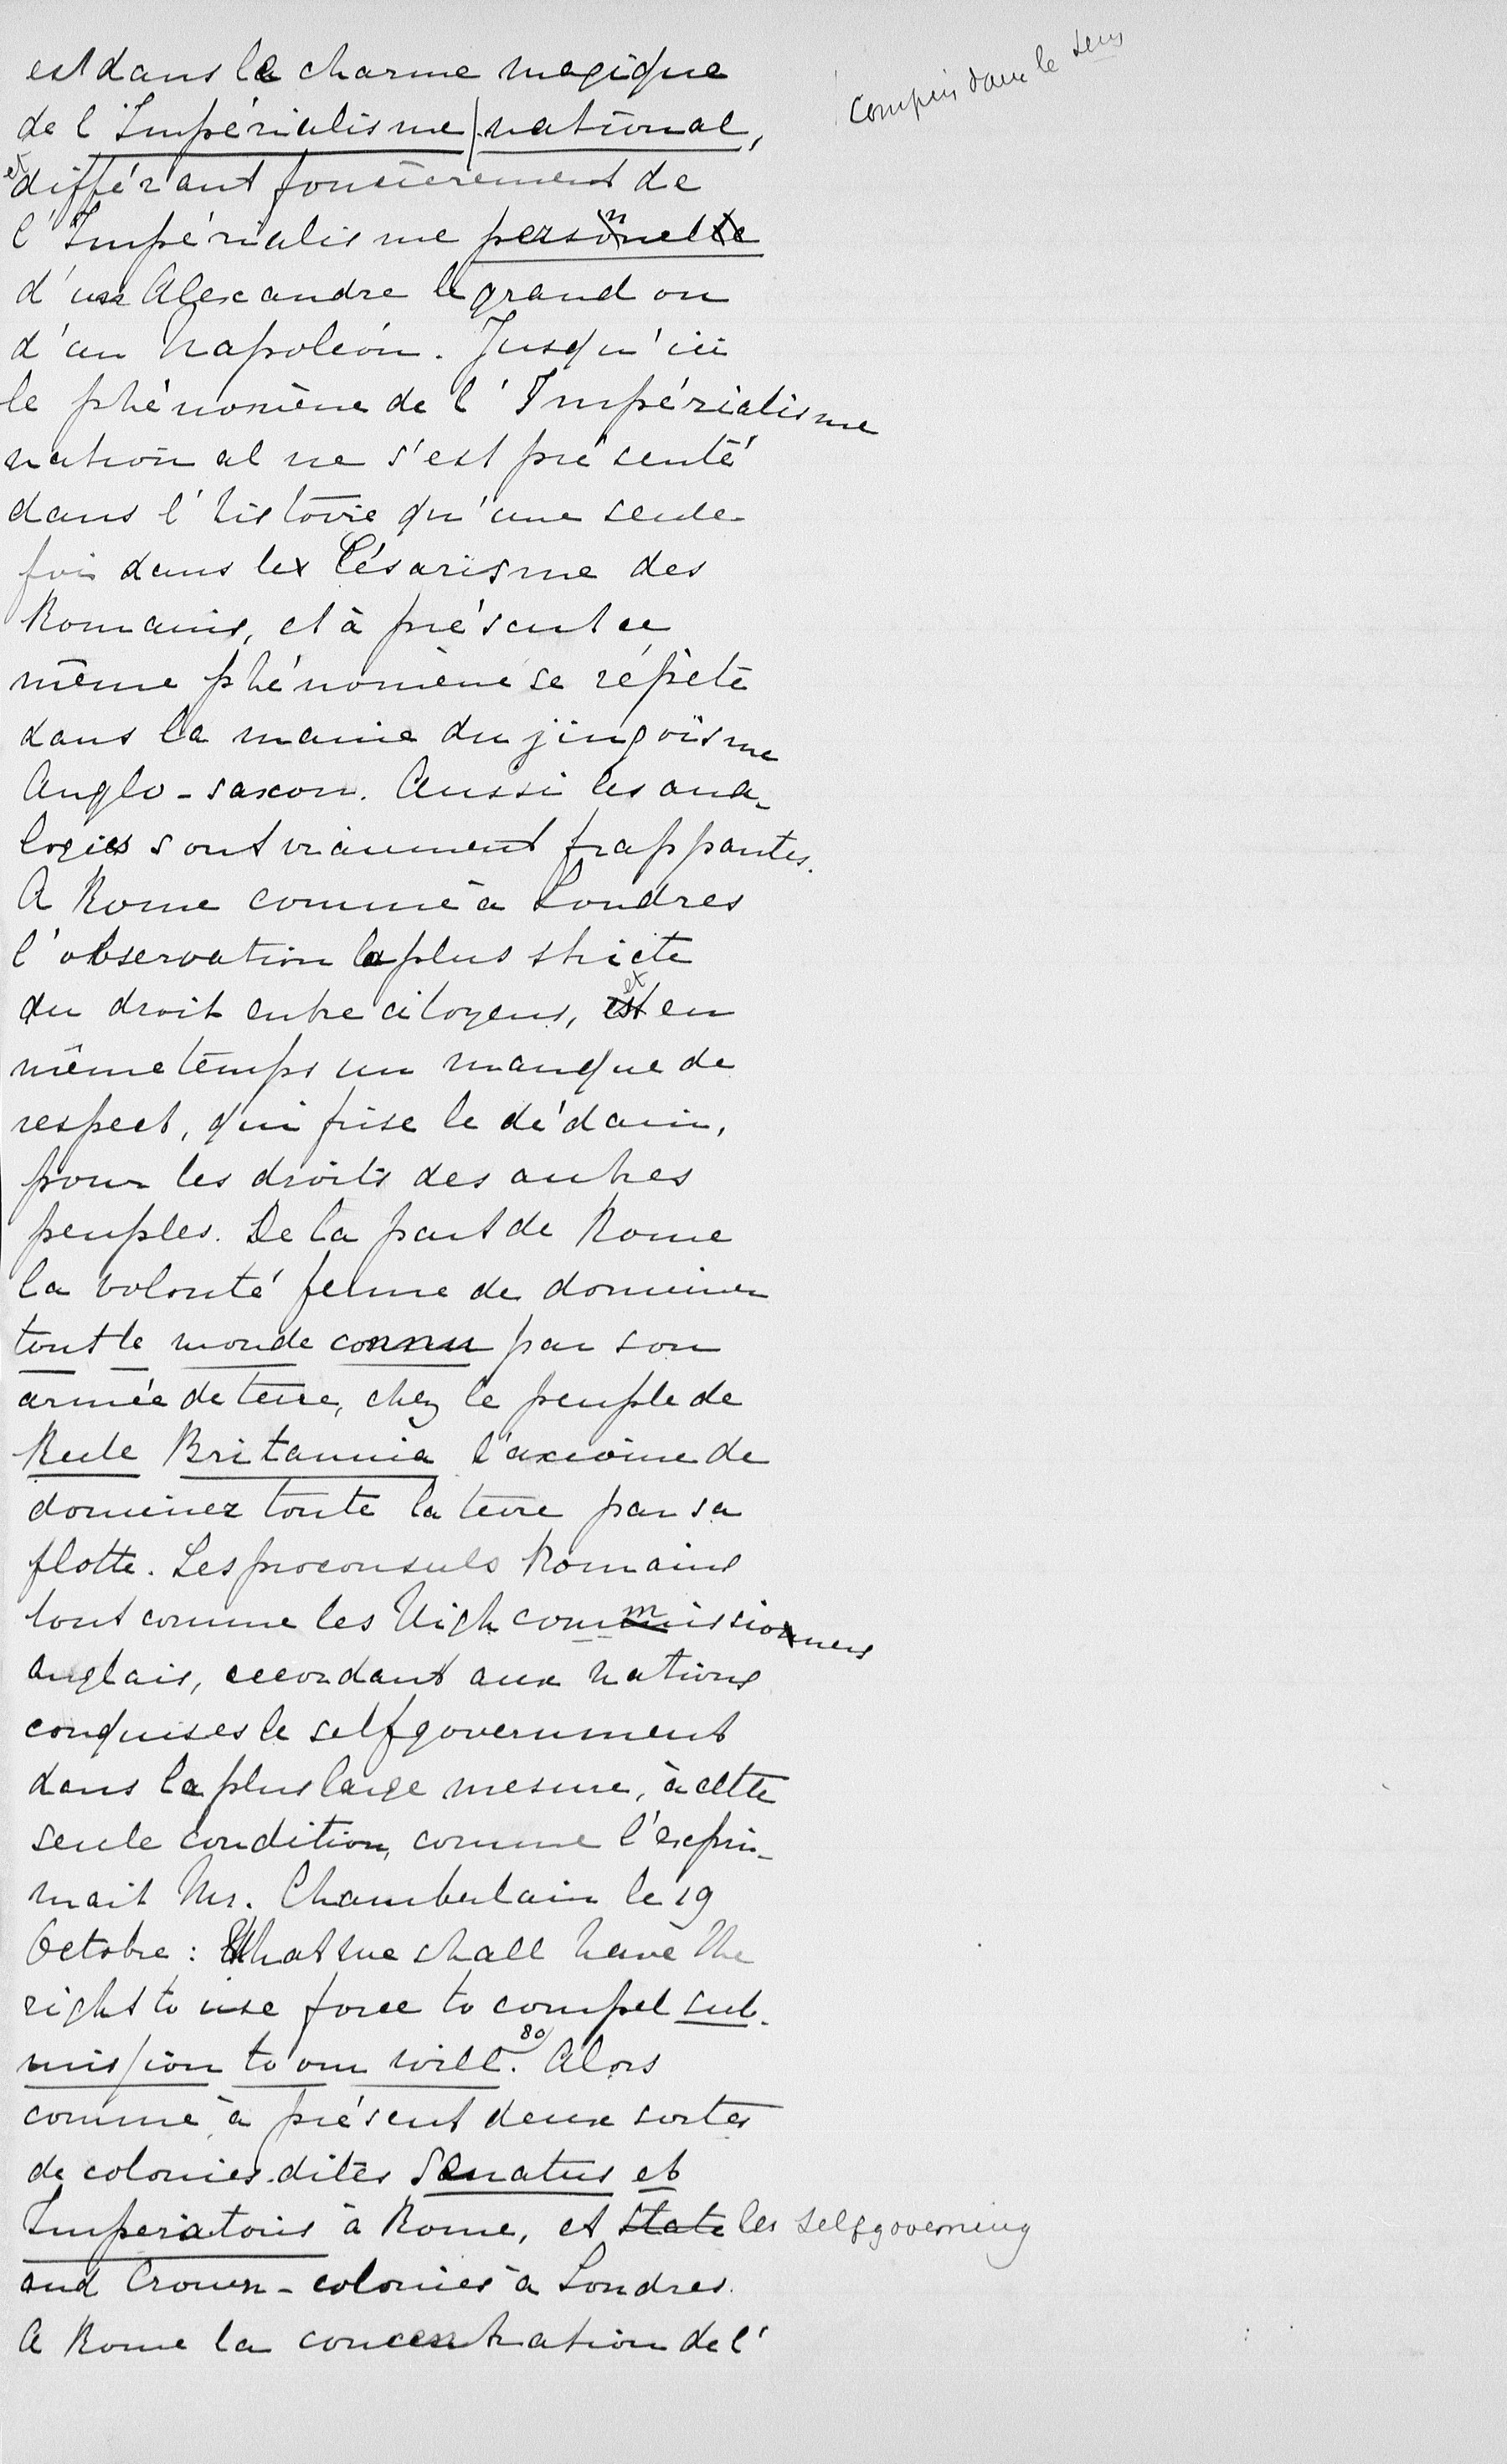 est dans le charme magique
compris dans le sens
de l'Impérialisme national,
et différant foncièrement de
l'Impérialisme personnel
d'un Alexandre le grand ou
d'un Napoléon. Jusqu'ici
le phénomène de l'Impérialisme
national ne s'est présenté
dans l'histoire qu'une seule
fois dans le Césarisme des
Romains, et à présent ce
même phénomène se répète
dans la manie du jingoïsme
Anglo-saxon. Aussi les ana-
logies sont vraiment frappantes.
A Rome comme à Londres
l'observation la plus stricte
du droit entre citoyens, et en
même temps un manque de
respect, qui frise le dédain,
pour les droits des autres
peuples. De la part de Rome
la volonté ferme de dominer
tout le monde connu par son
armée de terre, chez le peuple de
Rule Britannia l'axiome de
dominer toute la terre par sa
flotte. Les proconsuls Romains
tout comme les High commissioners
anglais, accordant aux nations
conquises le selfgovernment
dans la plus large mesure, à cette
seule condition, comme l'expri-
mait Mr. Chamberlain le 19
Octobre: That we shall have the
right to use force to compel sub-
mission to our will. 80) Alors
comme à présent deux sortes
de colonies dites Senatus et
Imperatoris à Rome, et state les selfgoverning
and Crown-colonies à Londres.
A Rome la concentration de l'